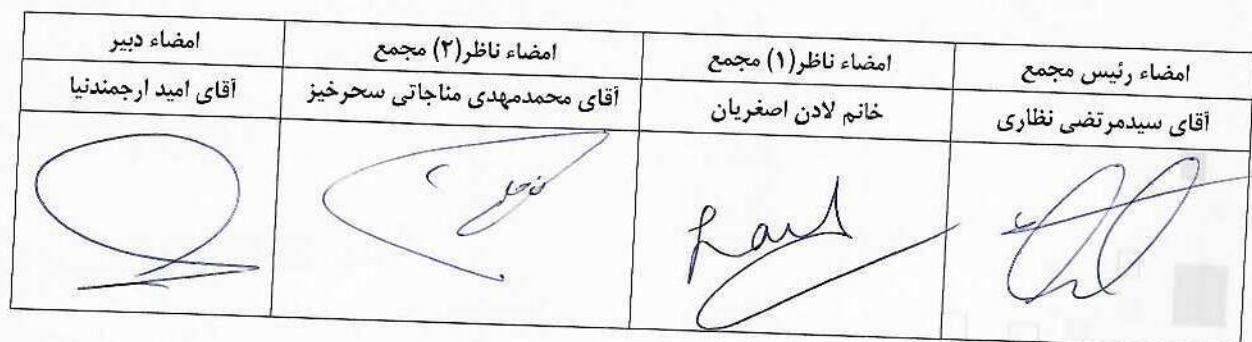 امضاء رئیس مجمع
امضاء ناظر(۱) مجمع
امضاء ناظر(۲) مجمع
امضاء دبیر
آقای سیدمرتضی نظاری
خانم لادن اصغریان
آقای محمدمهدی مناجاتی سحرخیز
آقای امید ارجمندنیا